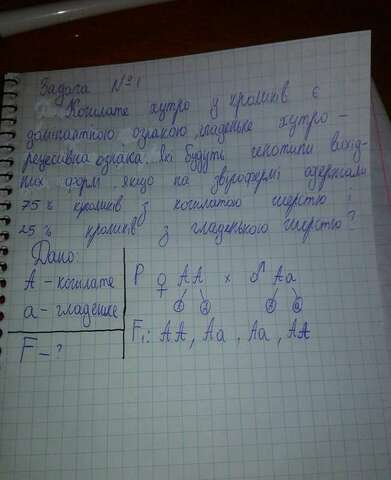 Задача №1
Кошлате хутро у кроликів є
домінантною ознакою, гладеньке хутро –
рецесивна ознака. Які будуть генотипи вихід-
них форм якщо на звірофермі одержали
75% кроликів з кошлатою шерстю і
25% кроликів з гладенького шерстю?
Дано:
А – кошлате
а – гладенке
F – ?
P ♀ AA × ♂ Aa
A A A a
F₁: AA, Aa, Aa, AA